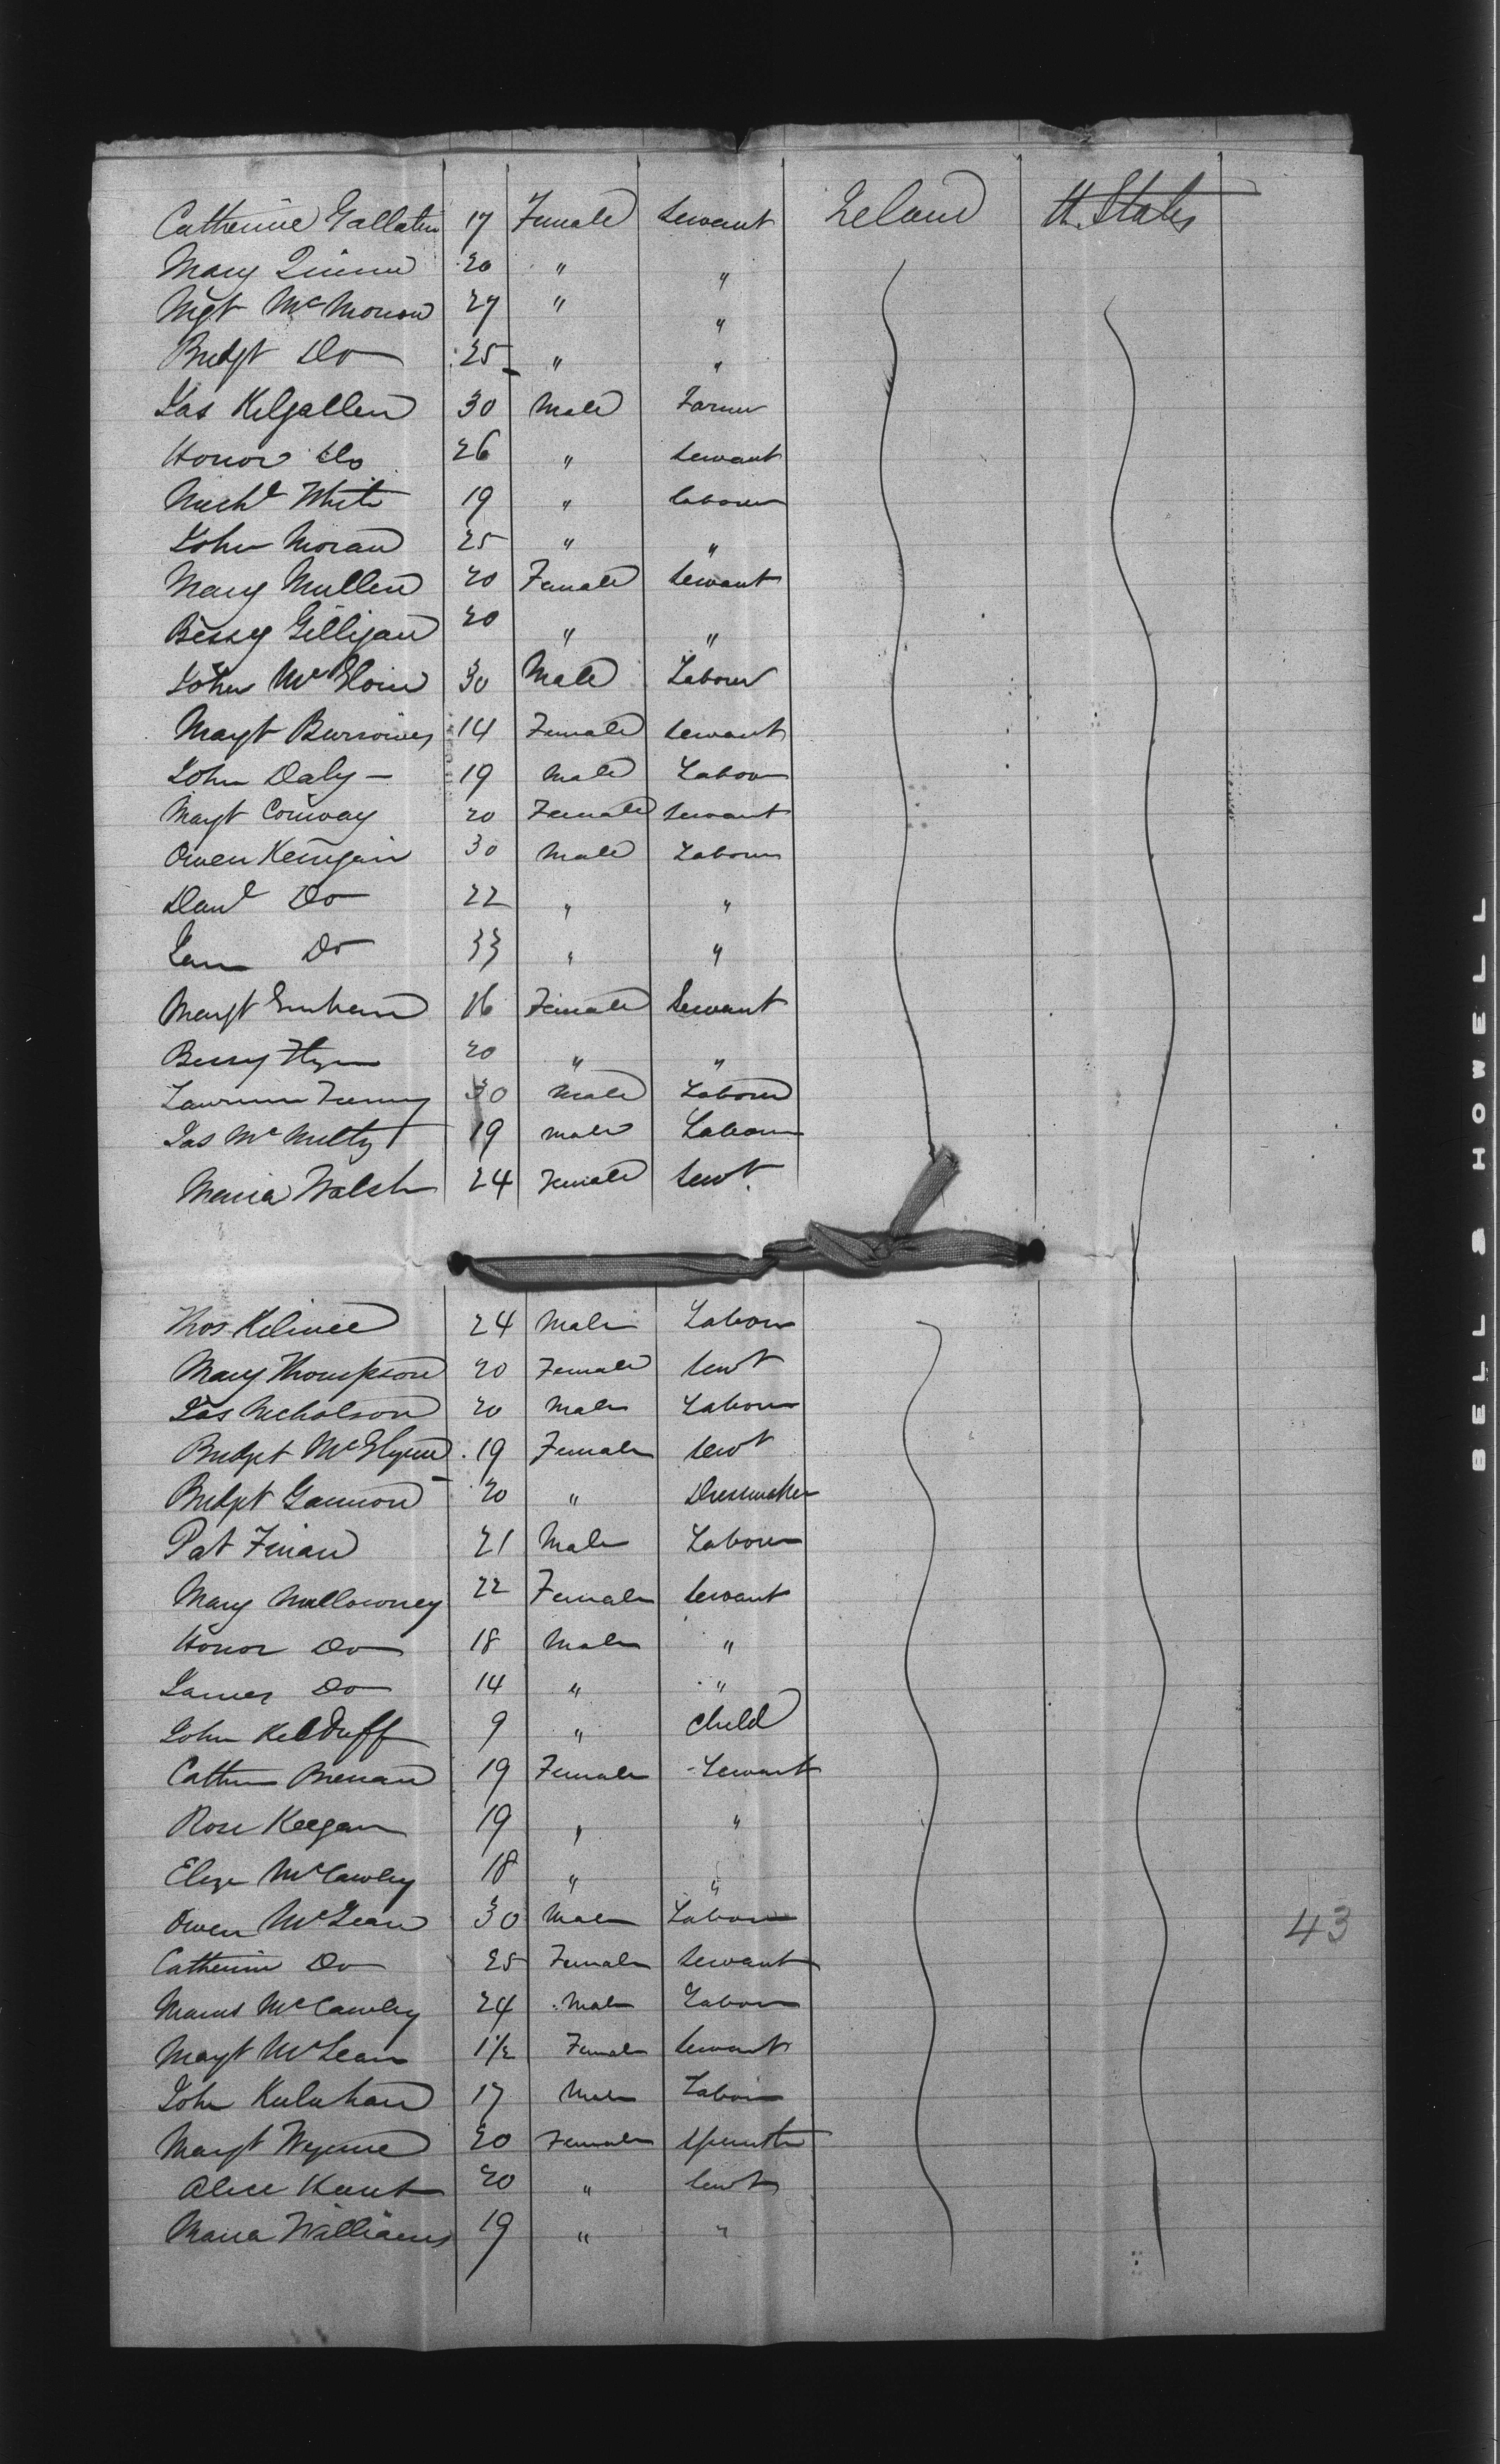 Catherine Gallaten 17 Female Servant Ireland U. States
Mary Quinn 20 " "
Mgt McMorrow 27 " "
Bridgt Do 25 " "
Jas Kilgallen 30 Male Farmer
Honor Do 26 " Servant
Michl White 19 " Labourer
John Moran 25 " "
Mary Mullen 20 Female Servant
Bessy Gilligan 20 " "
John McGloin 30 Male Labourer
Margt Burrowes 14 Female Servant
John Daly 19 Male Labour
Margt Conway 20 Female Servant
Owen Kerrigan 30 Male Labourer
Danl Do 22 " "
Do 33 " "
Margt 16 Female Servant
Bessy Flynn 20 " "
Lawrence 30 Male Labourer
Jas McNulty 19 Male Labour
Maria Walsh 24 Female Servt
Thos 24 Male Labour
Mary Thompson 20 Female Servt
Jas Nicholson 20 Male Labour
Bridget McGlynn 19 Female Servt
Bridget Gannon 20 " Dressmaker
Pat Finan 21 Male Labourer
Mary Mullowney 22 Female Servant
Honor Do 18 Male "
James Do 14 " "
John Kilduff 9 " Child
Catherine Brenan 19 Female Servant
Rose Keegan 19 " "
Eliza McCawley 18 " "
Owen McLean 30 Male Labour 43
Catherine Do 25 Female Servant
McCawley 24 Male Labour
Margt McLean 1½ Female Servant
John 17 Male Labour
Margt Wynne 20 Female Spinster
Alice 20 " Servt
Maria Williams 19 " "
BELL & HOWELL